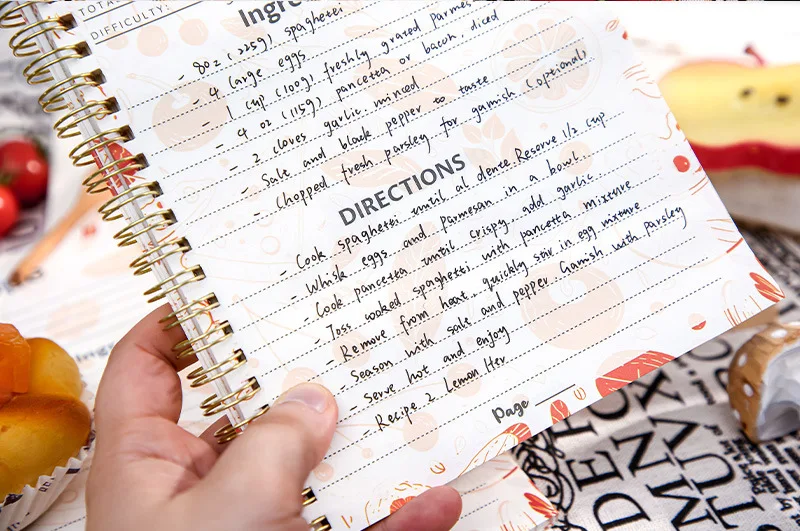 TOTAL
DIFFICULTY:
Ingre
- 8oz (225g) spaghetti
- 4 large eggs
- 1 cup (100g) freshly grated Parmes
- 4 oz (115g) pancetta or bacon, diced
- 2 cloves garlic, minced
- Sale and black pepper to taste
- Chopped fresh parsley for garnish (optional)
DIRECTIONS
- Cook spaghetti until al dente. Reserve 1/2 cup
- Whisk eggs and Parmesan in a bowl.
- Cook pancetta until crispy, add garlic
- Toss cooked spaghetti with pancetta mixture
- Remove from heat, quickly stir in egg mixture
- Season with sale and pepper Garnish with parsley
- Serve hot and enjoy
- Recipe 2 Lemon Her
Page